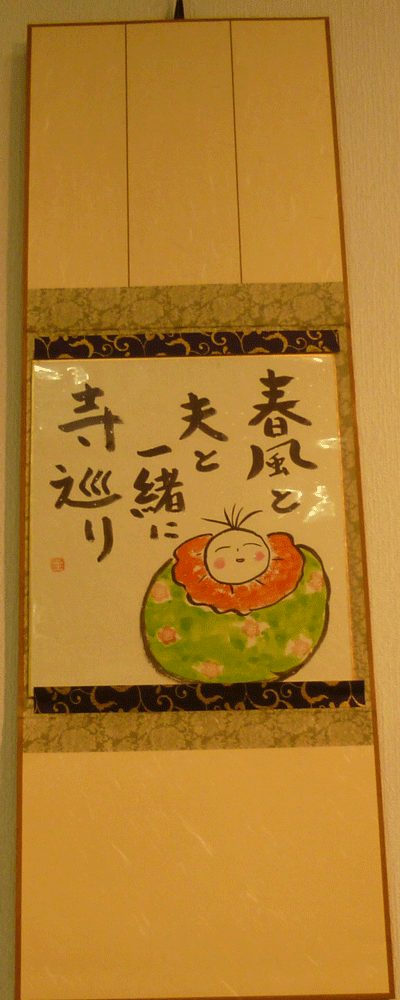 春風と
夫と
一緒に
寺巡り